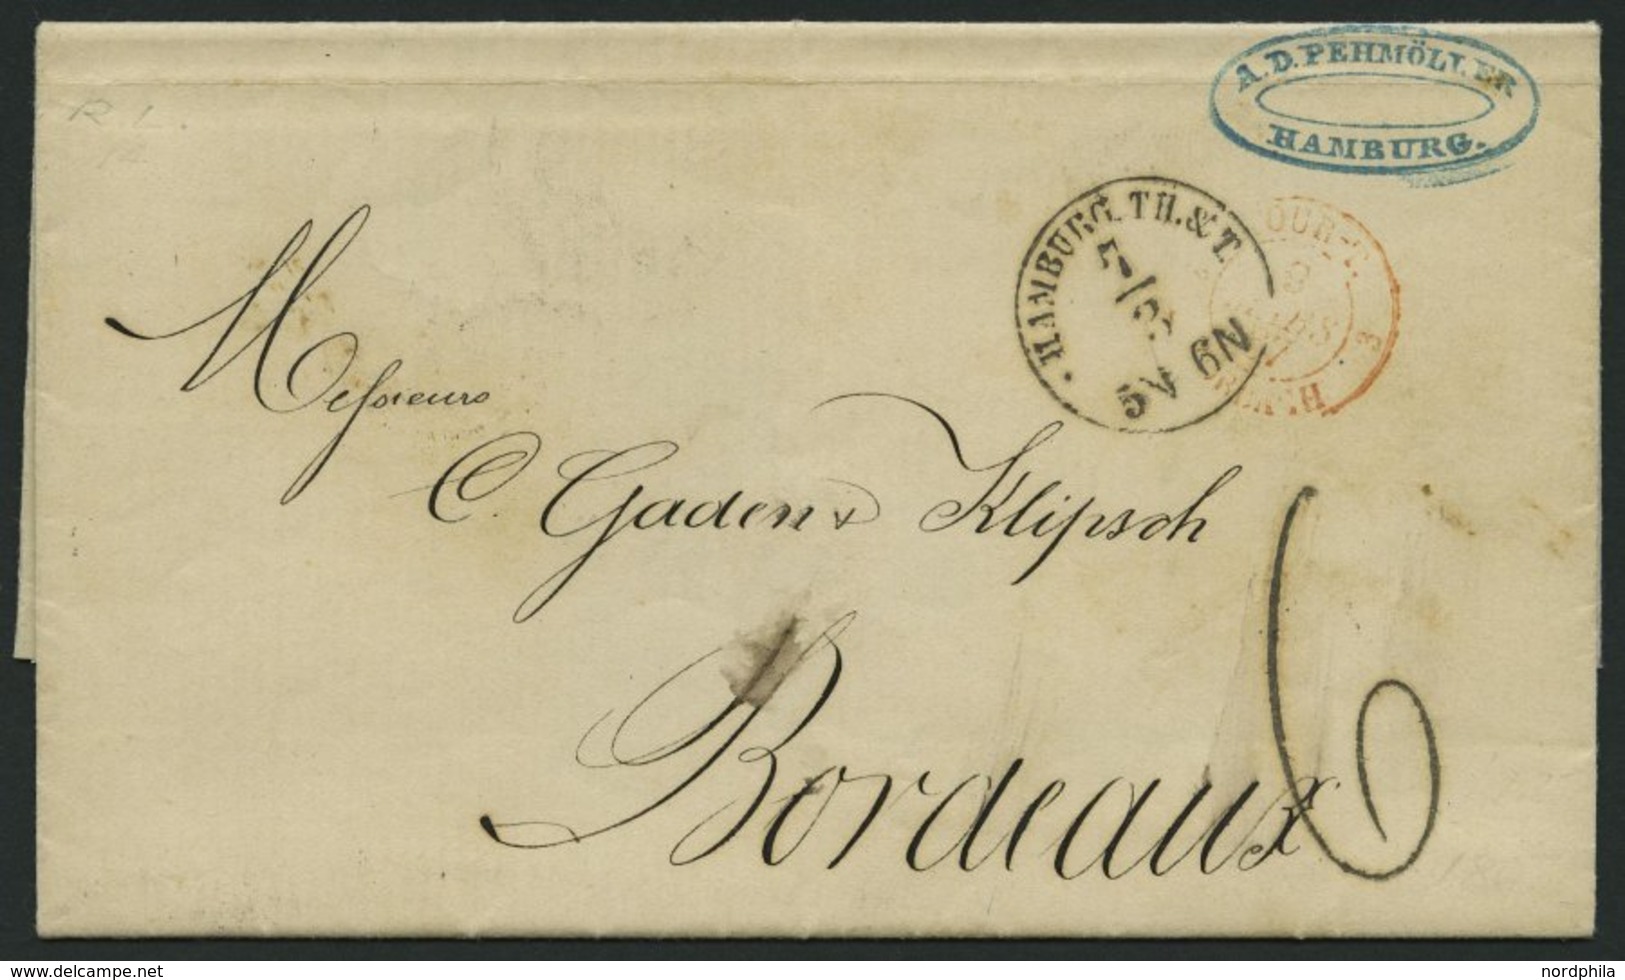 A. D. PEHMÖLLER
HAMBURG.
HAMBURG. TH. & T.
7/3
5 V 6 N
TOUR-T.
9
MARS
3
Messieurs
C. Gaden & Klipsch
Bordeaux
6
R 1
www.delcampe.net
nordphila